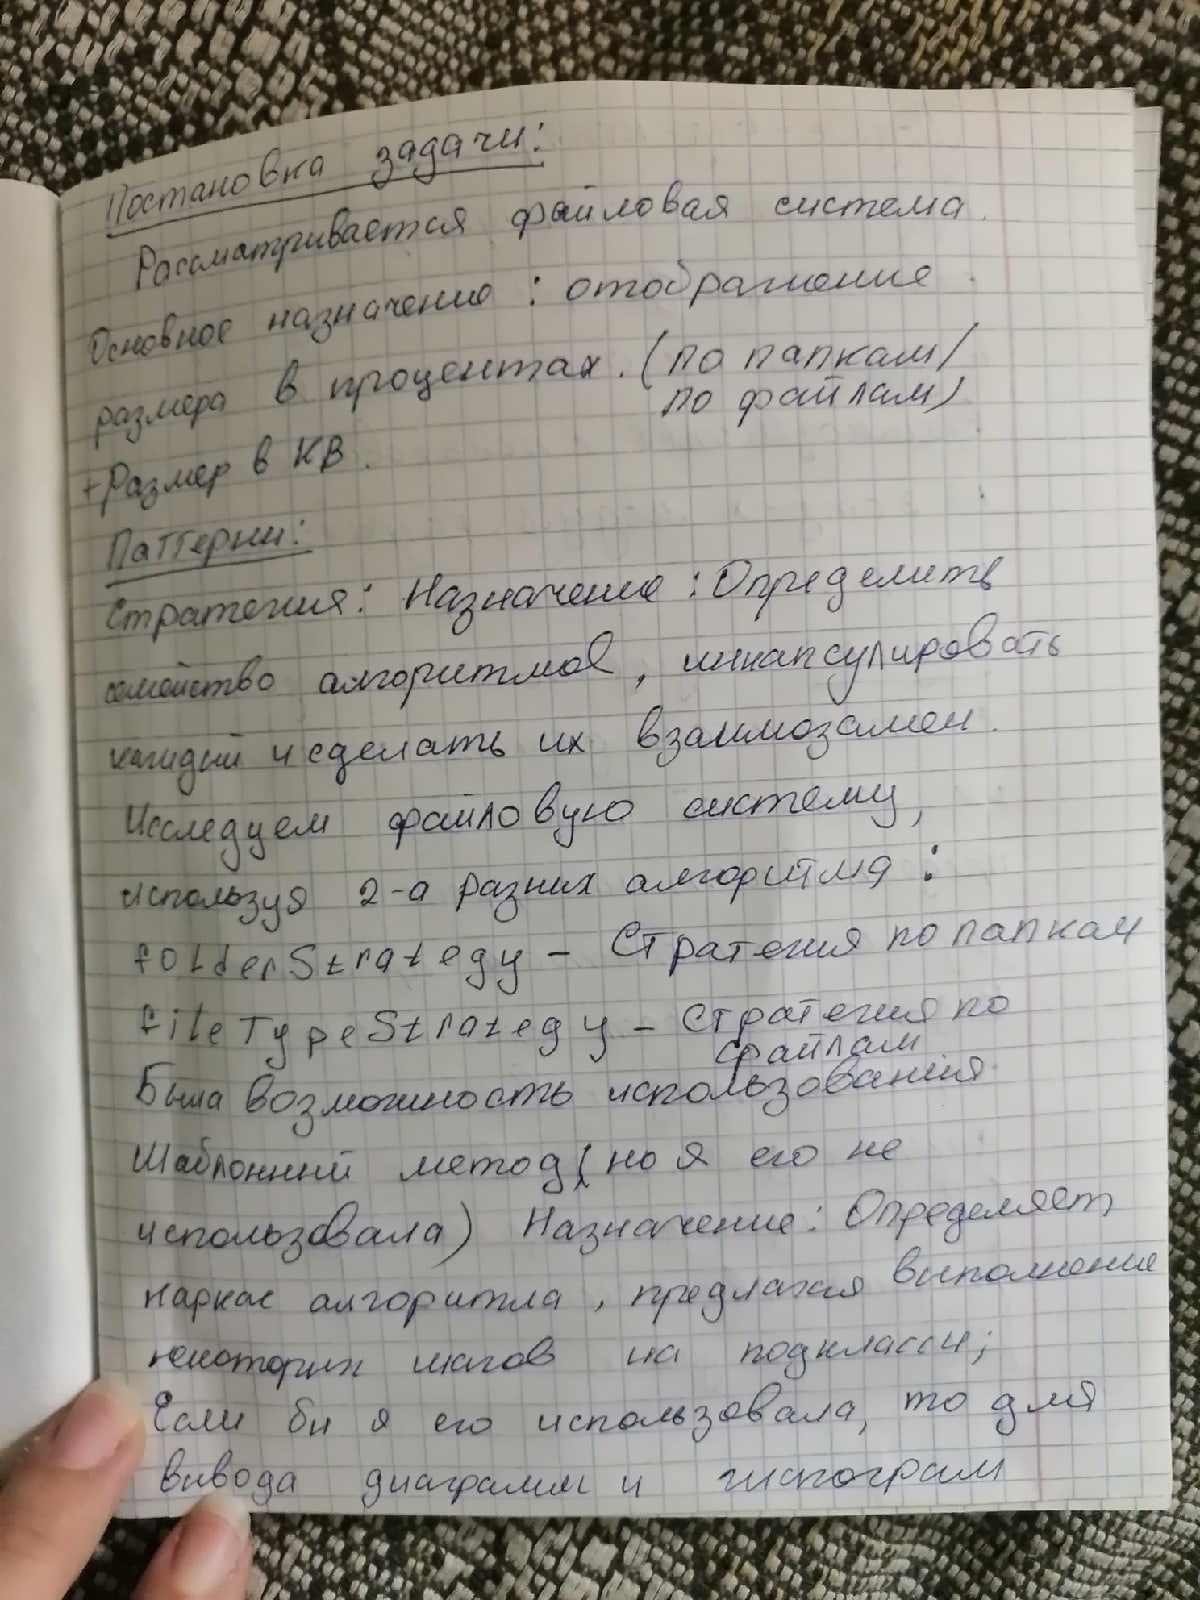 Постановка задачи:
Рассматривается файловая система.
Основное назначение : отображение
размера в процентах. (по папкам/
по файлам)
+Размер в КВ.
Паттерны:
Стратегия: Назначение : Определить
семейство алгоритмов, инкапсулировать
каждый и сделать их взаимозамен.
Исследуем файловую систему,
используя 2-а разных алгоритма :
folderStrategy – Стратегия по папкам
fileTypeStrategy – Стратегия по
файлам
Была возможность использования
Шаблонный метод (но я его не
использовала) Назначение: Определяет
каркас алгоритма, предлагая выполнение
некоторых шагов на подклассы;
Если бы я его использовала, то для
вывода диаграмм и гистограм